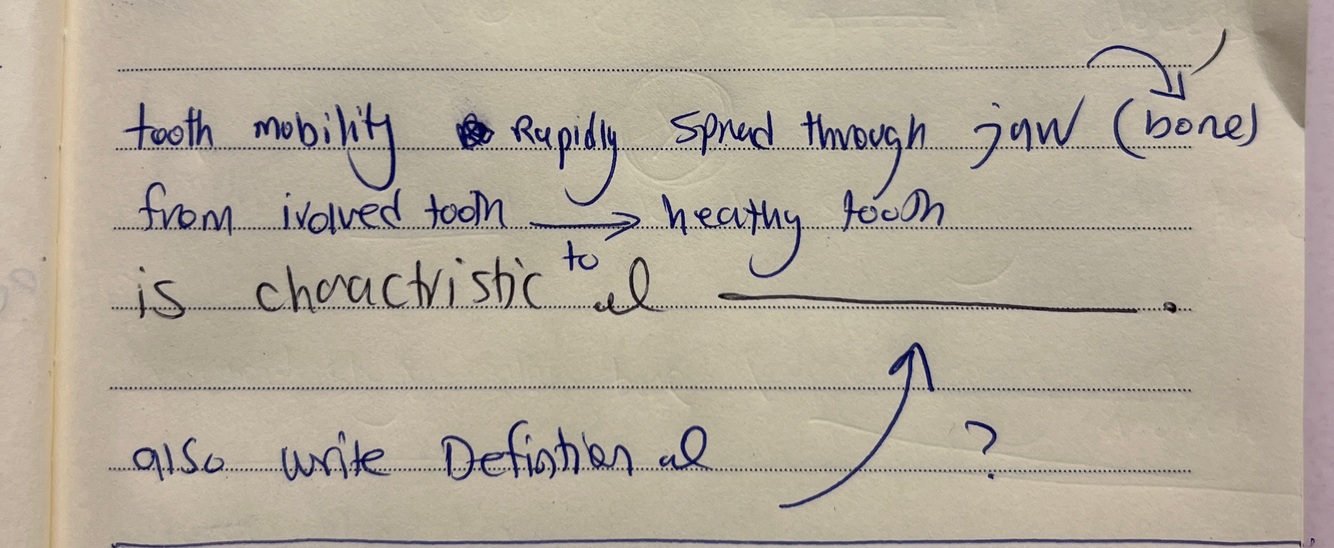 tooth mobility Rapidly Spread through jaw (bone)
from ivolved tooth → heathy tooth
to
is charactristic of
also write Defintion of ?